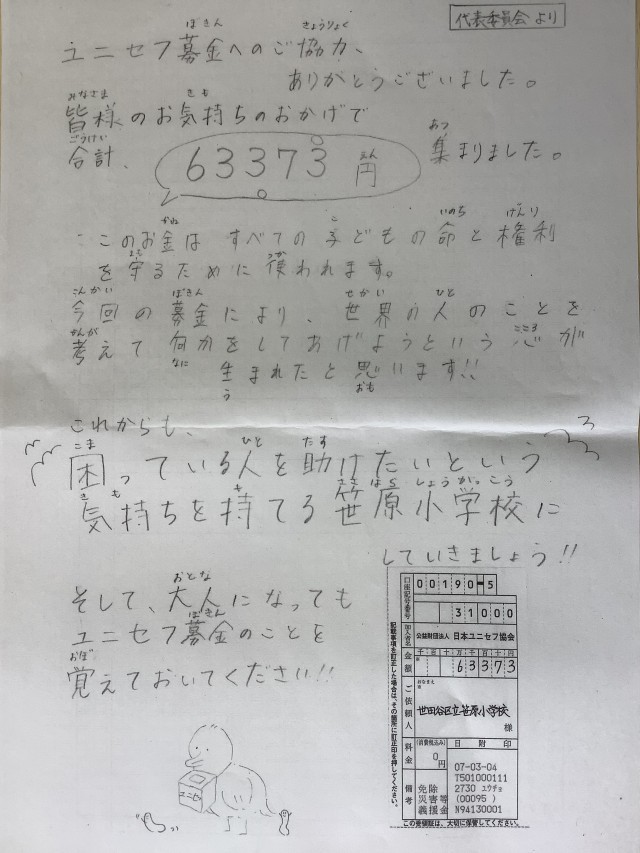 代表委員会より
ユニセフ募金へのご協力、
ありがとうございました。
皆様のお気持ちのおかげで
合計、63373円 集まりました。
このお金は すべての子どもの命と権利
を守るために使われます。
今回の募金により、世界の人のことを
考えて何かをしておげようという心が
生まれたと思います!!
これからも、
困っている人を助けたいという
気持ちを持てる笹原小学校に
していきましょう!!
そして、大人になっても
ユニセフ募金のことを
覚えておいてください!!
ユニセフ
口座記号番号 00190-5
31000
加入者名 公益財団法人 日本ユニセフ協会
金額 千百十万千百十円
63373
ご依頼人 おなまえ
世田谷区立笹原小学校
様
料金 (消費税込み) 0円
日附印
07-03-04
T501000111
2730 ユウチョ
(00095 )
N94130001
備考 免除
災害等
義援金
記載事項を訂正した場合は、その箇所に訂正印を押してください。
この受領証は、大切に保管してください。